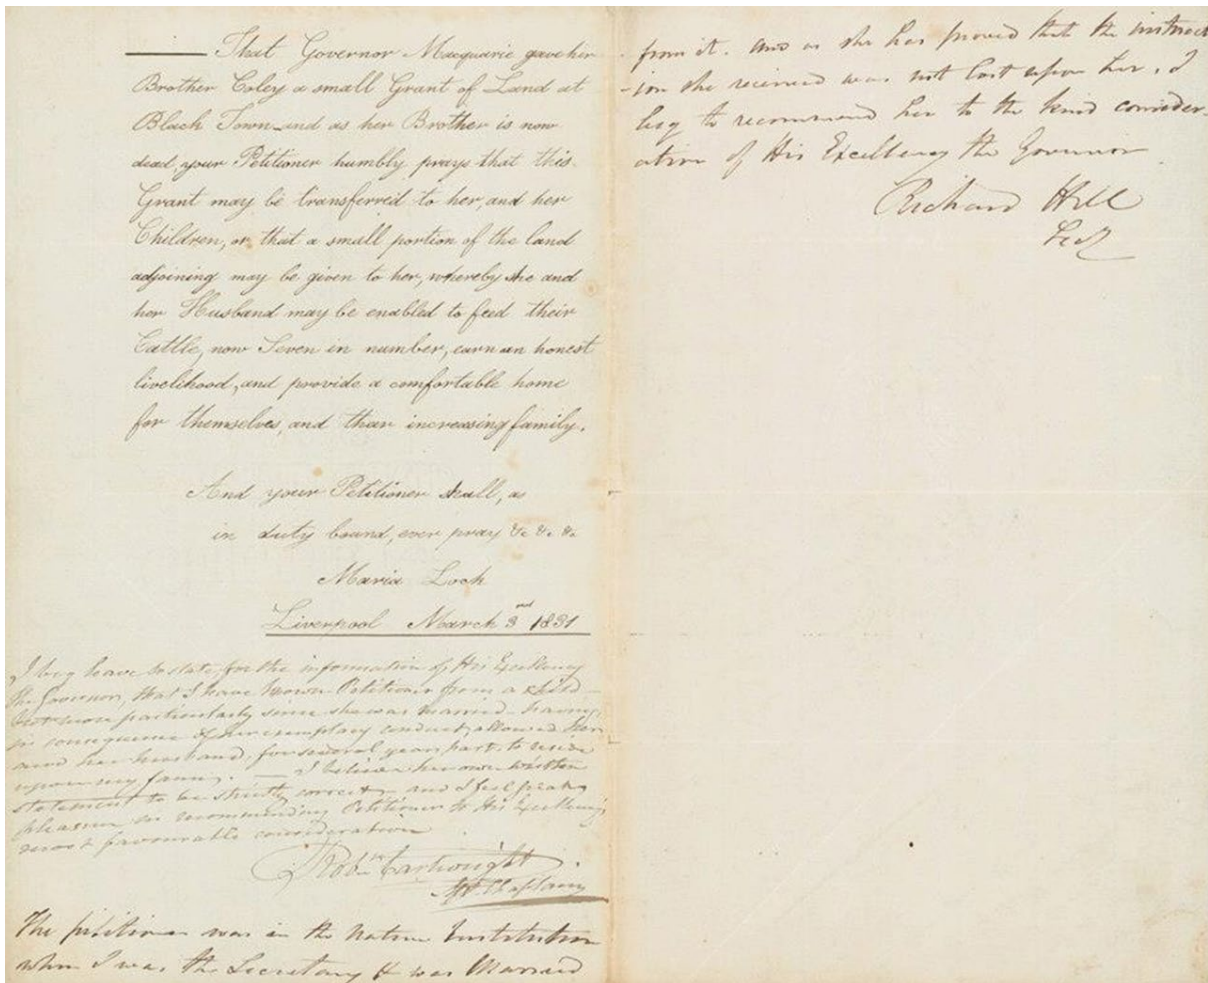 That Governor Macquarie gave her
Brother Coley a small Grant of Land at
Black Town and as her Brother is now
dead, your Petitioner humbly prays that this
Grant may be transferred to her, and her
Children, or that a small portion of the land
adjoining may be given to her, whereby she and
her Husband may be enabled to feed their
Cattle, now Seven in number, earn an honest
livelihood, and provide a comfortable home
for themselves, and their increasing family.
And your Petitioner shall, as
in duty bound, ever pray &c &c &c
Maria Lock
Liverpool March 3rd 1831
I beg leave to state for the information of His Excellency
the Governor, that I have known Petitioner from a child
but more particularly since she was married having,
in consequence of her exemplary conduct, allowed her
and her husband, for several years past, to reside
upon my farm. — I believe her own written
statement to be strictly correct, and I feel great
pleasure in recommending Petitioner to His Excellency's
most favourable consideration
Robt Cartwright
Chaplain
The petitioner was in the Native Institution
when I was the Secretary & was Married
from it. and as she has proved that the instruct
-ion she received was not lost upon her, I
beg to recommend her to the kind consider-
ation of His Excellency the Governor
Richard Hill